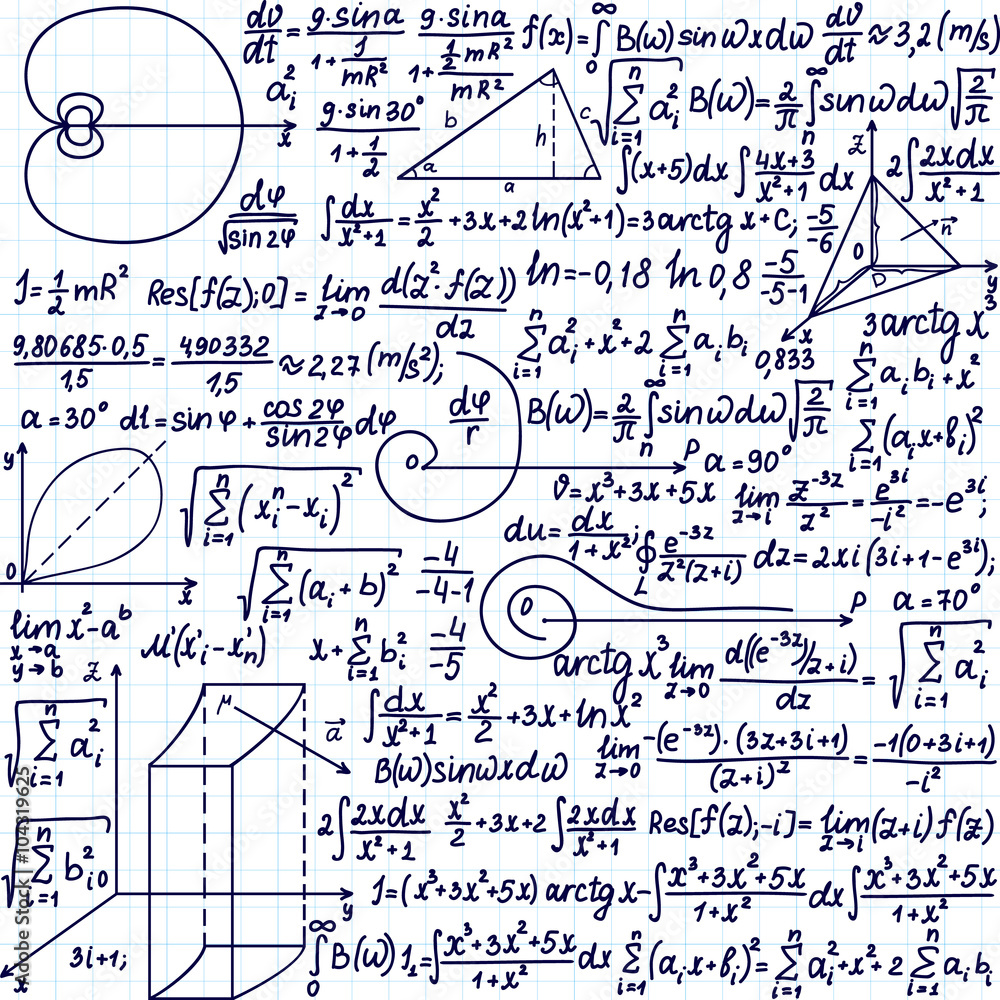 dv/dt = g·sina/(1+1/(mR²)) g·sina/(1+(1/2 mR²)/(mR²)) f(x)=∫₀^∞ B(ω)sinωxdω dv/dt ≈3,2(m/s)
a_i² √(∑_{i=1}^n a_i²) B(ω)=2/π ∫_n^∞ sinωdω√(2/π)
x g·sin30°/(1+1/2) b h c a a
∫(x+5)dx ∫(4x+3)/(x²+1) dx z 2∫2xdx/(x²+1)
dφ/√(sin2φ) ∫dx/(x²+1) = x²/2 +3x+2ln(x²+1)=3arctg x+C; -5/-6 0 n⃗
J=1/2 mR² Res[f(z);0]= lim_{z→0} d(z²·f(z))/dz ln=-0,18 ln0,8 -5/(-5-1) D y x
9,80685·0,5/1,5 = 4,90332/1,5 ≈2,27(m/s²); ∑_{i=1}^n a_i²+x²+2 ∑_{i=1}^n a_i b_i 0,833 3arctg x³
∑_{i=1}^n a_i b_i+x²
a=30° dl=sinφ+cos2φ/sin2φ dφ dφ/r B(ω)=2/π ∫_n^∞ sinωdω√(2/π) ∑_{i=1}(a_i x+b_i)²
y 0 P a=90°
√(∑_{i=1}^n (x_i^n-x_i)²) v=x³+3x+5x lim_{z→i} z^{-3z}/z² = e^{3i}/-i² =-e^{3i};
du=dx/(1+x²); ∮_L e^{-3z}/(z²(z+i)) dz=2xi(3i+1-e^{3i});
0 x √(∑_{i=1}^n (a_i+b)²) -4/(-4-1) 0 P a=70°
lim_{x→a y→b} x²-a^b μ'(x'_i-x'_n) x+∑_{i=1}^n b_i² -4/-5
arctg x³ lim_{z→0} d((e^{-3z})/z+i)/dz = √(∑_{i=1}^n a_i²)
z μ a⃗ ∫dx/(x²+1) = x²/2 +3x+lnx²
√(∑_{i=1}^n a_i²) B(ω)sinωxdω lim_{z→0} -(e^{-3z})·(3z+3i+1)/(z+i)² = -1(0+3i+1)/-i²
2∫2xdx/(x²+1) x²/2 +3x+2 ∫2xdx/(x²+1) Res[f(z);-i]= lim_{z→i}(z+i)f(z)
√(∑_{i=1}^n b_{i0}²) y J=(x³+3x²+5x) arctg x-∫(x³+3x²+5x)/(1+x²) dx∫(x³+3x²+5x)/(1+x²)
x 3i+1; ∫₀^∞ B(ω) J₁=∫(x³+3x²+5x)/(1+x²) dx ∑_{i=1}^n (a_i x+b_i)²=∑_{i=1}^n a_i²+x²+2 ∑_{i=1}^n a_i b_i
Adobe Stock | #104319625